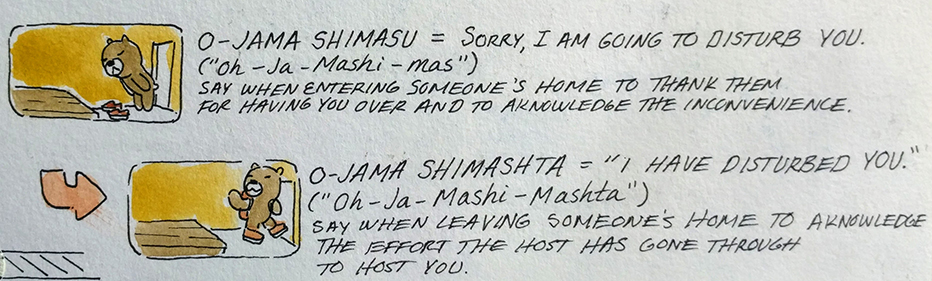 O-JAMA SHIMASU = SORRY, I AM GOING TO DISTURB YOU.
("Oh-Ja-Mashi-mas")
SAY WHEN ENTERING SOMEONE'S HOME TO THANK THEM
FOR HAVING YOU OVER AND TO AKNOWLEDGE THE INCONVENIENCE.
O-JAMA SHIMASHTA = "I HAVE DISTURBED YOU."
("Oh-Ja-Mashi-Mashta")
SAY WHEN LEAVING SOMEONE'S HOME TO AKNOWLEDGE
THE EFFORT THE HOST HAS GONE THROUGH
TO HOST YOU.